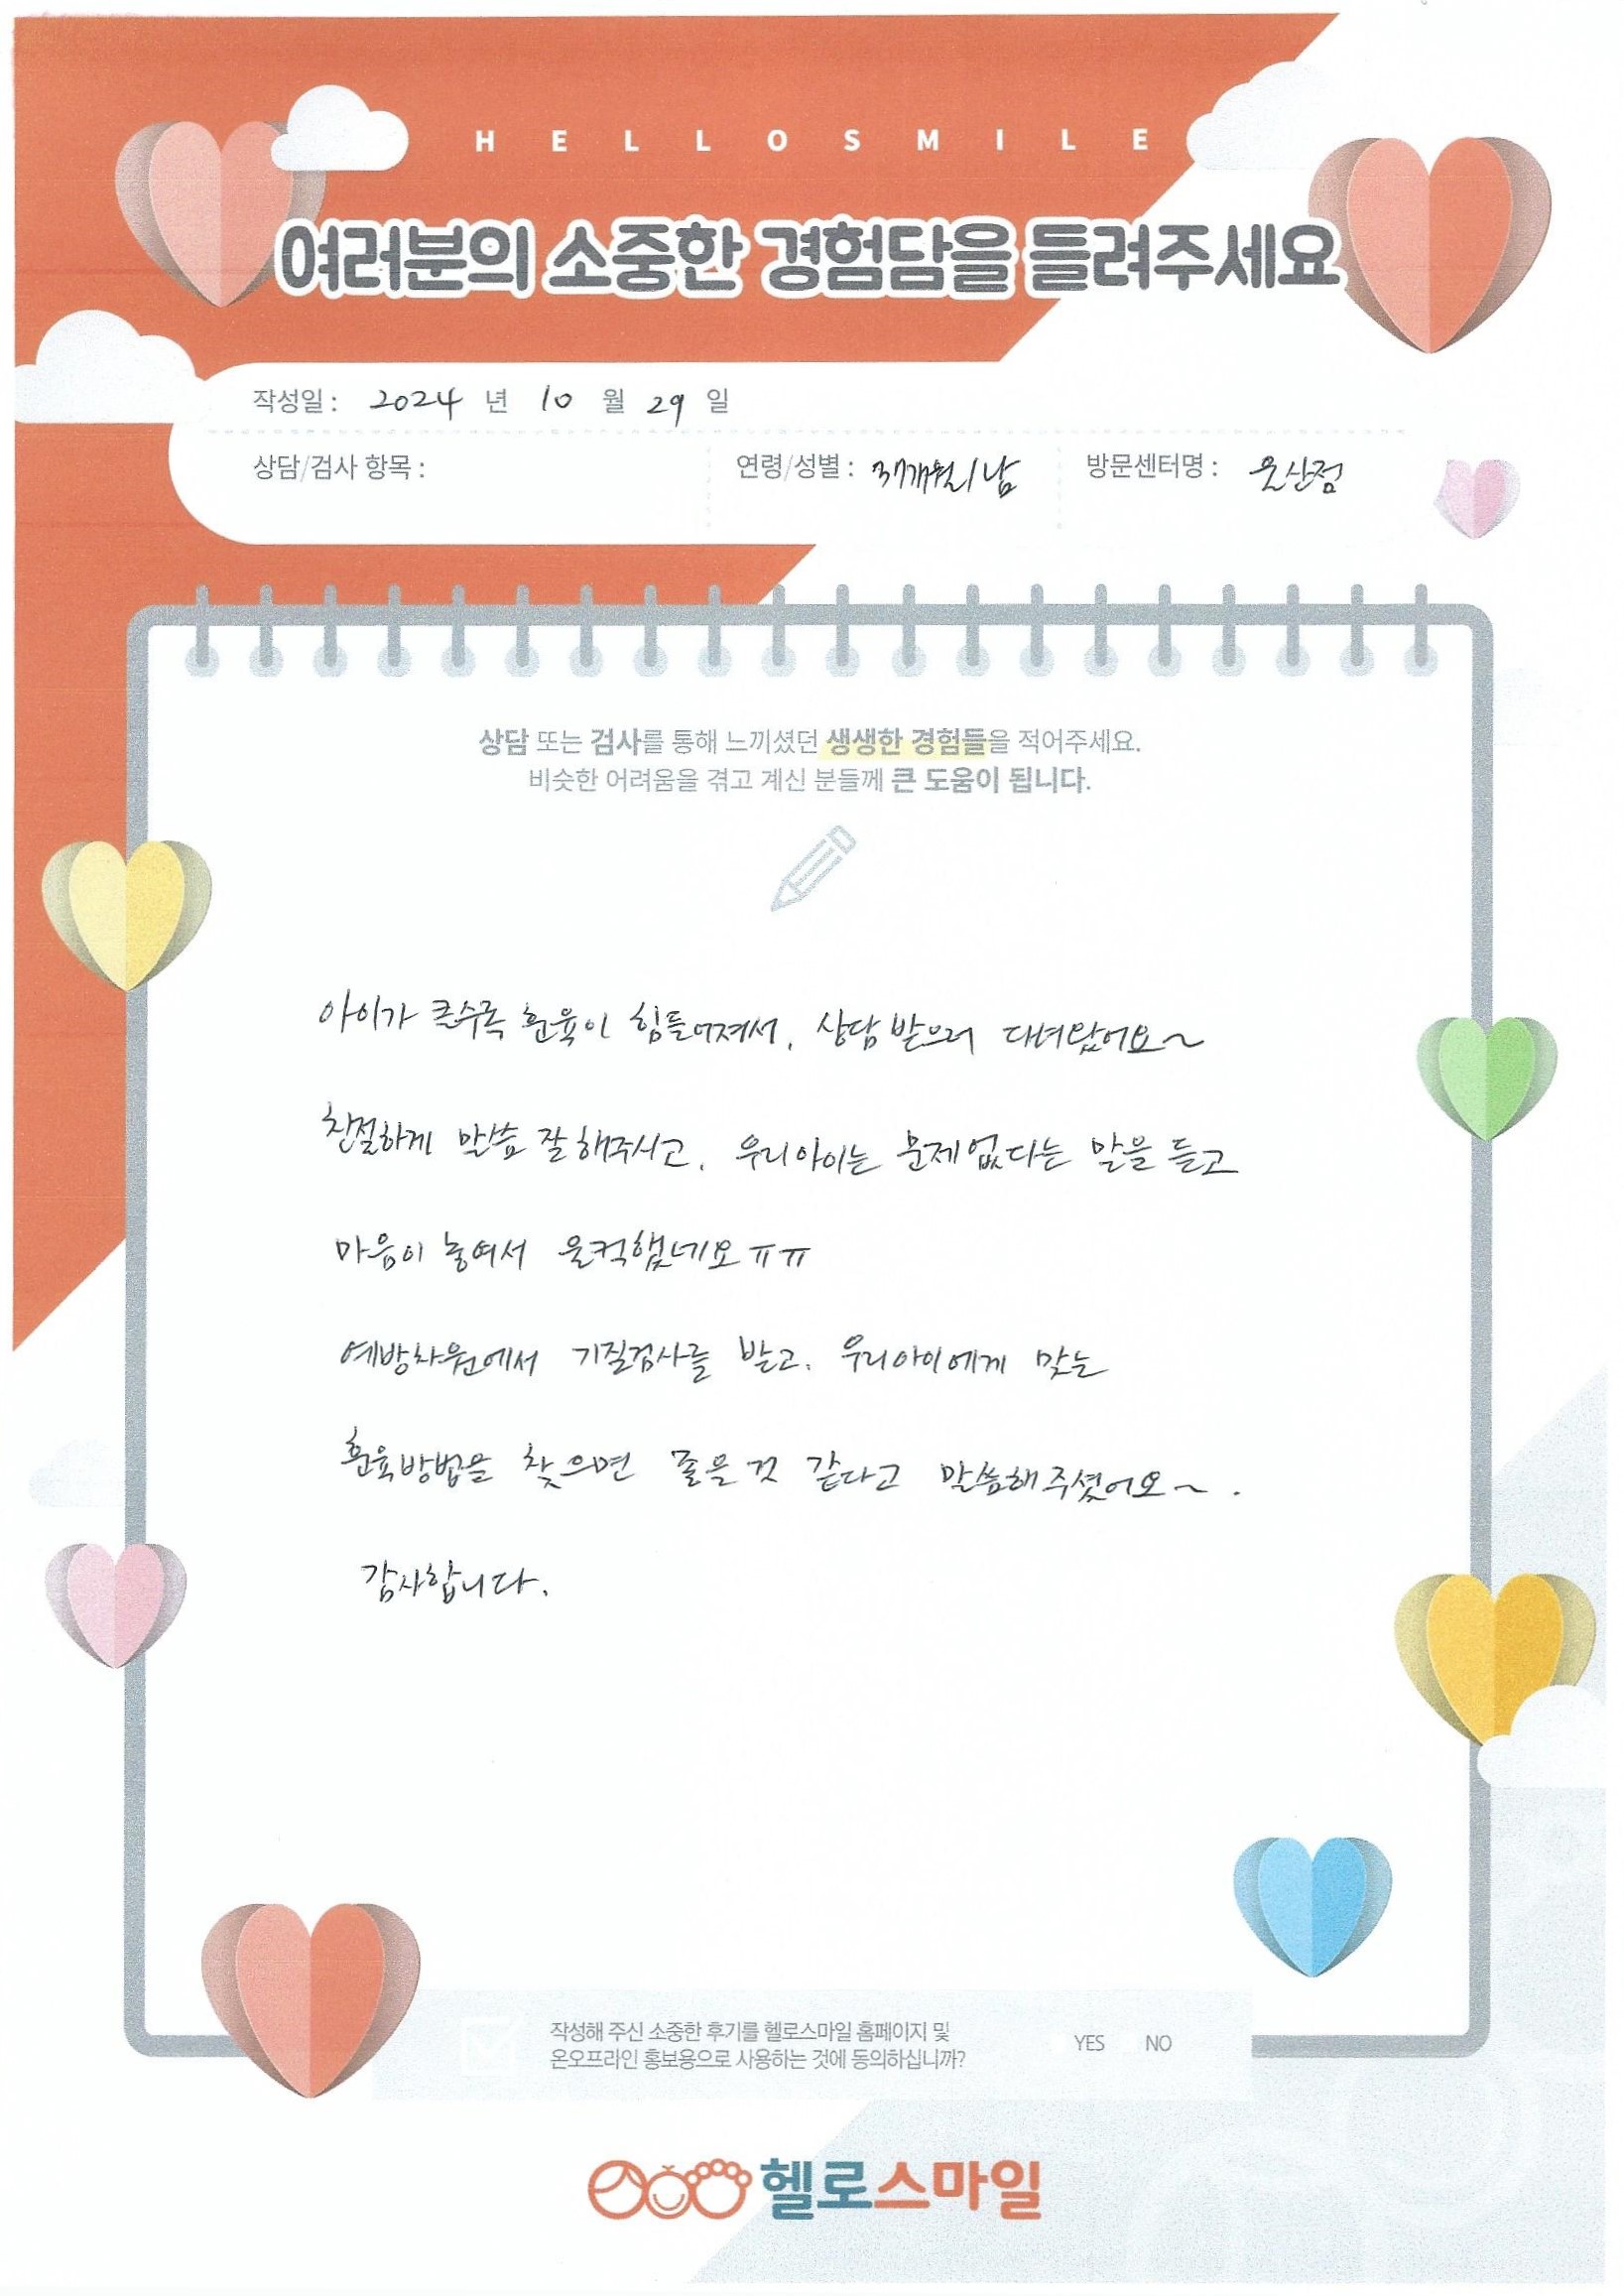 HELLOSMILE
여러분의 소중한 경험담을 들려주세요
작성일 : 2024 년 10 월 29 일
상담/검사 항목 : 연령/성별 : 37개월/남 방문센터명 : 운산점
상담 또는 검사를 통해 느끼셨던 생생한 경험들을 적어주세요.
비슷한 어려움을 겪고 계신 분들께 큰 도움이 됩니다.
아이가 클수록 훈육이 힘들어져서, 상담 받으러 다녀왔어요~
친절하게 말씀 잘 해주시고, 우리아이는 문제없다는 말을 듣고
마음이 놓여서 울컥했네요ㅠㅠ
예방차원에서 기질검사를 받고, 우리아이에게 맞는
훈육방법을 찾으면 좋을 것 같다고 말씀해주셨어요~.
감사합니다.
작성해 주신 소중한 후기를 헬로스마일 홈페이지 및
온오프라인 홍보용으로 사용하는 것에 동의하십니까? YES NO
헬로스마일